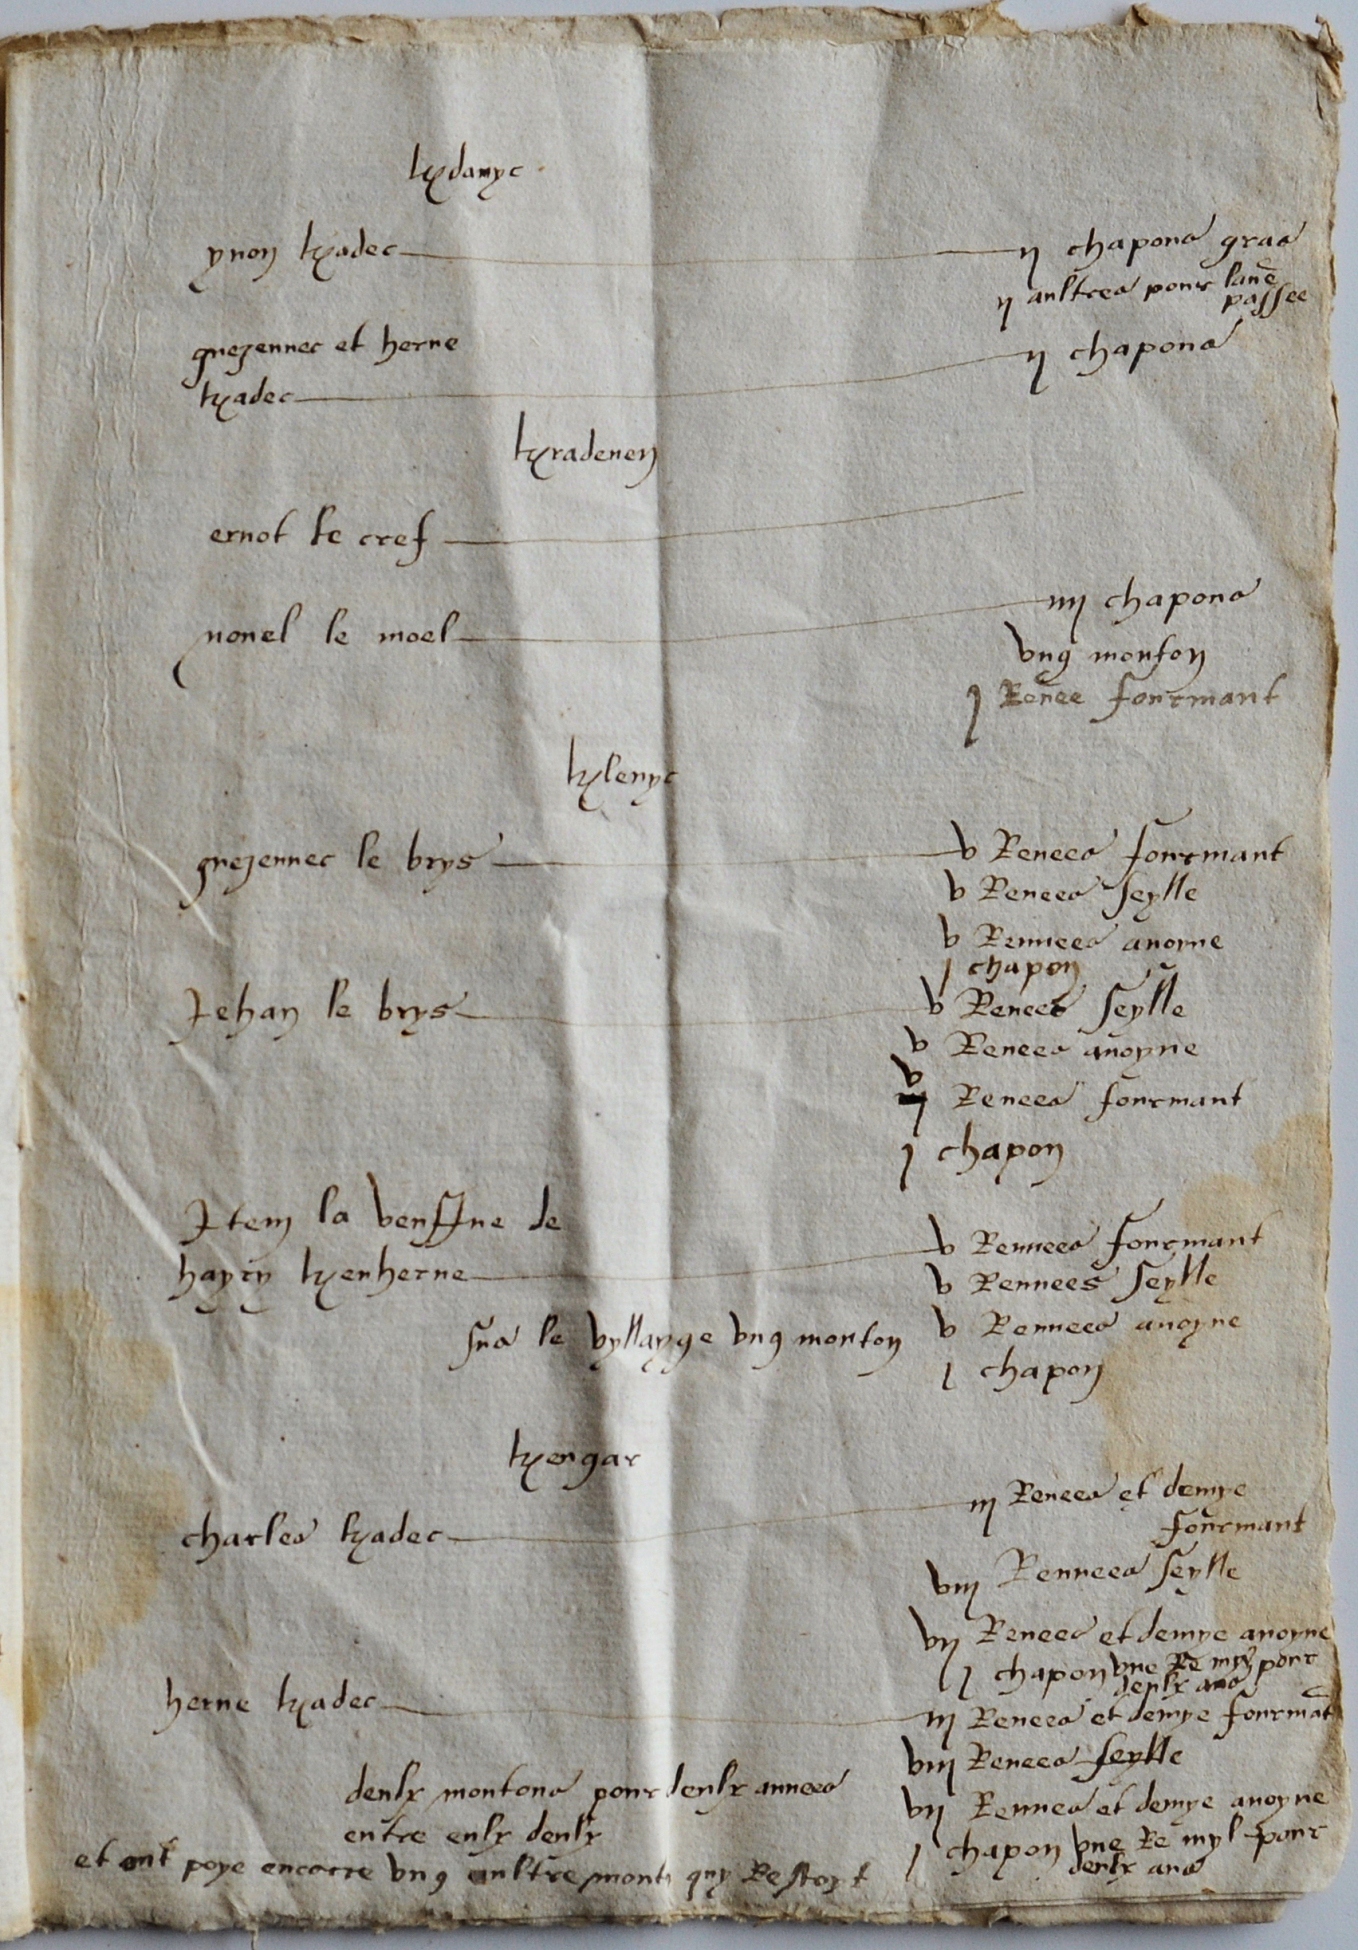 kdanyc
yvon kadec ij chapons gras
ij aultres pour lane
passee
guezennec et herve
kadec ij chapons
kradenen
ernot le cref
nouel le moel iiij chapons
ung mouton
j Renee fourmant
klenyc
guezennec le brys v Renees fourmant
v Renees seylle
v Rennees avoyne
j chapon
Jehan le brys v Renees seylle
v Renees avoyne
v
Renees fourmant
j chapon
Item la veuffve de
hayry kenherve v Rennees fourmant
v Rennees seylle
sus le vyllayge ung mouton v Rennees avoyne
j chapon
kengar
charles kadec iij Renees et demye
fourmant
viij Rennees seylle
vij Renees et demye avoyne
j chapon une Re myl pour
deulx ans
herve kadec iij Renees et demye fourmat
viij Renees seylle
deulx moutons pour deulx annees
vij Rennes et demye avoyne
entre eulx deulx
j chapon une Re myl pour
deulx ans
et ont poye encorre ung aultre mont quy Restoyt